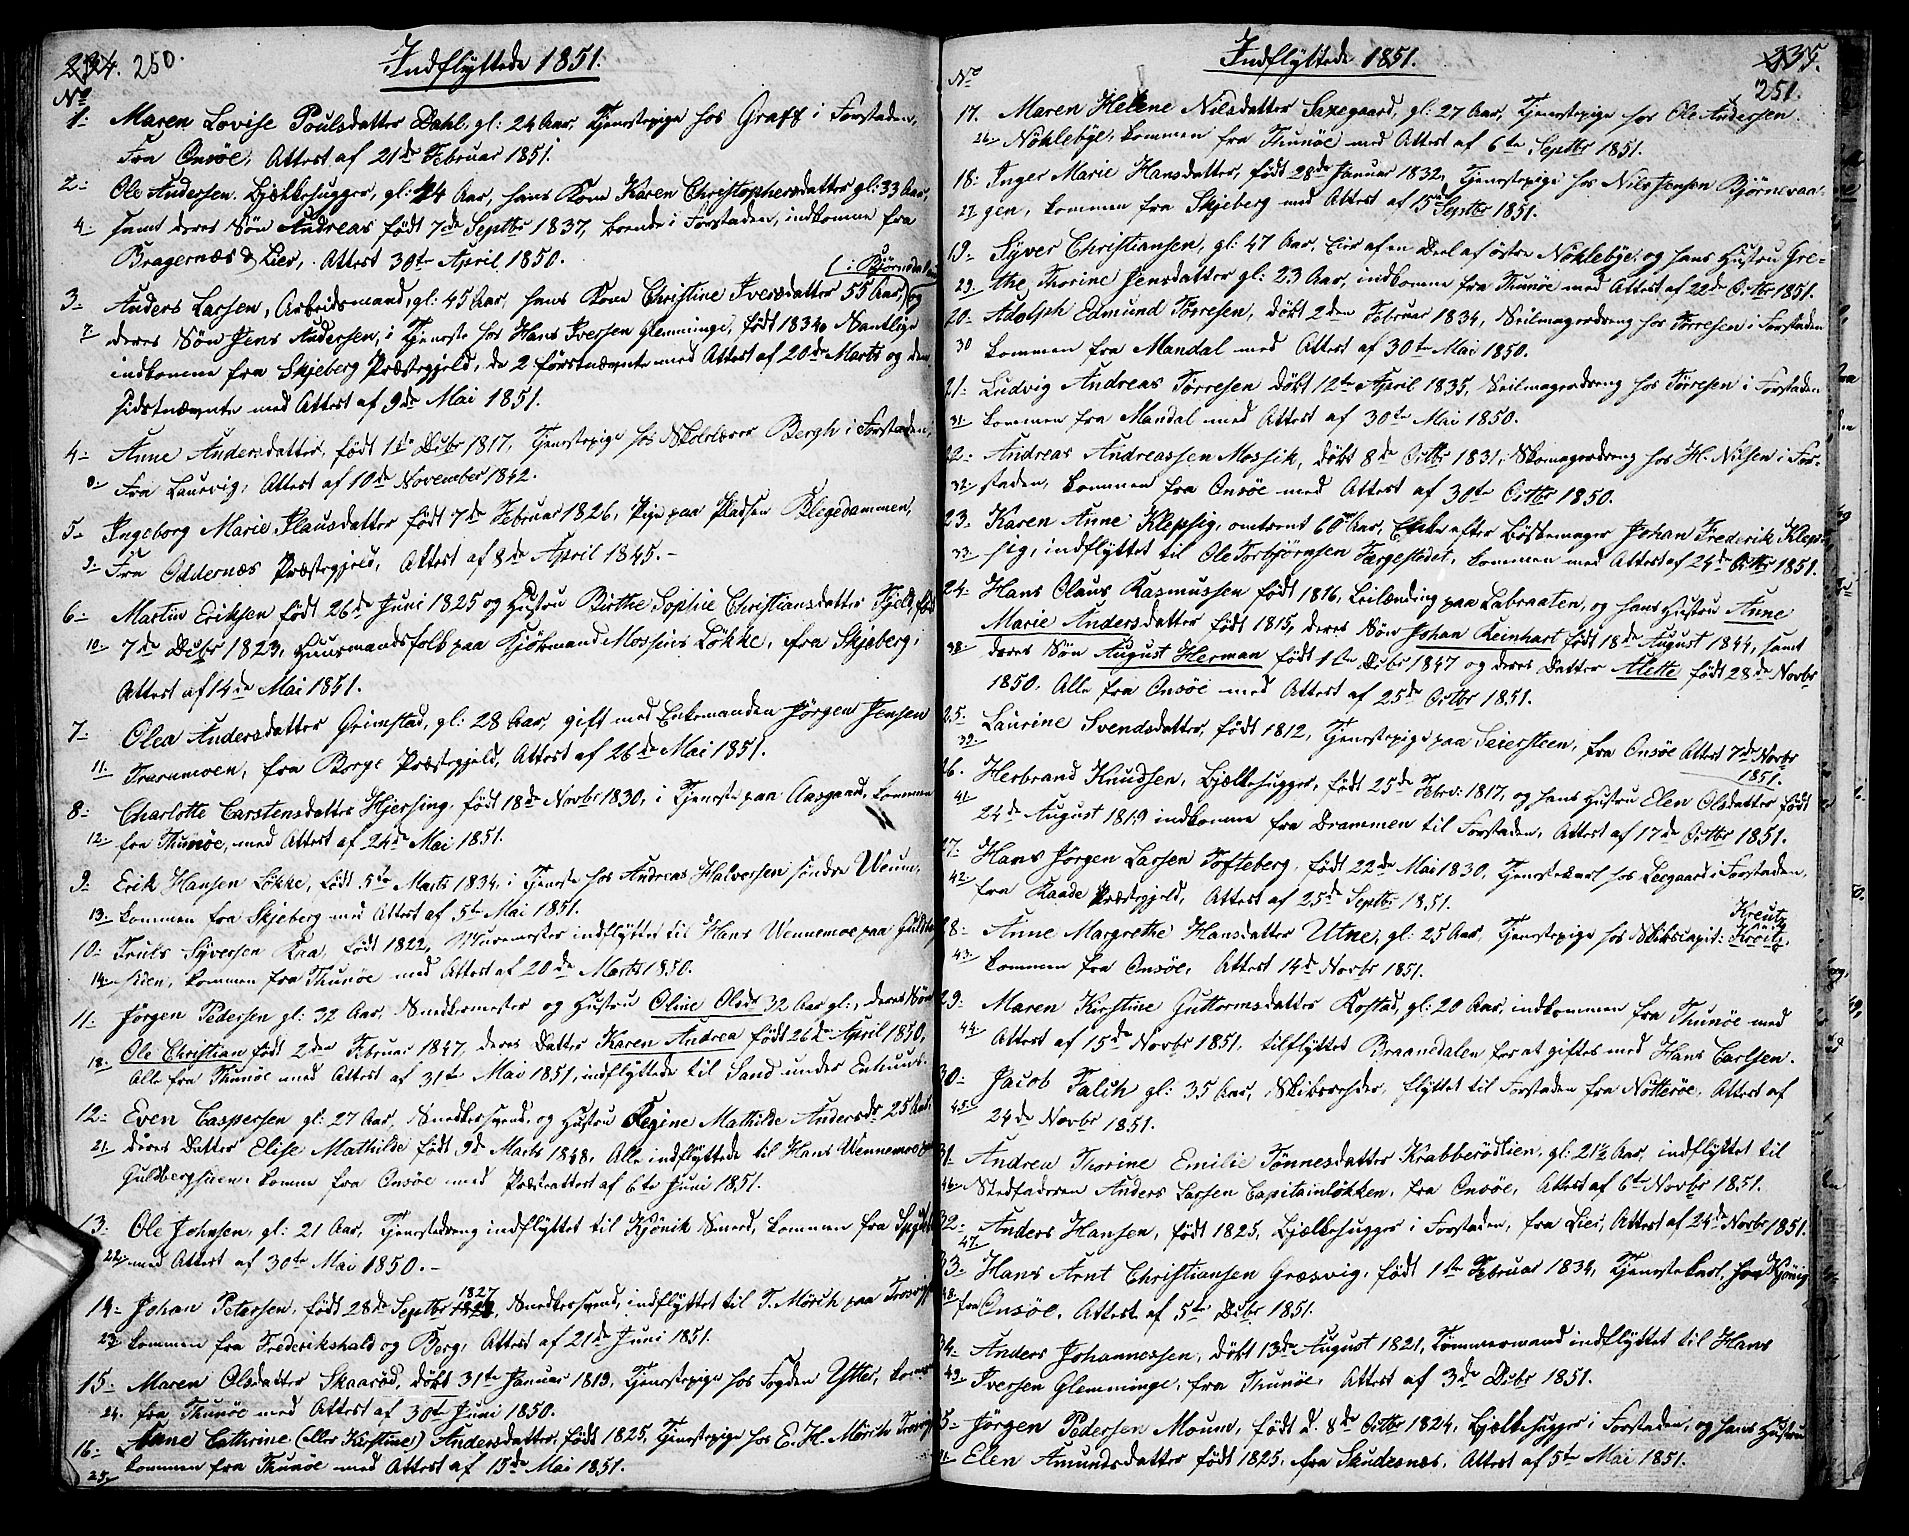 234. 250. Indflyttede 1851.
No
1: Maren Lovise Poulsdatter Dahl, gl: 24 Aar, Tjenestepige hos Graff i Forstaden,
Fra Onsöe, Attest af 21de Februar 1851.
2: Ole Andersen Bjelkehugger, gl: 44 Aar, hans Kone Karen Christophersdatter gl: 33 Aar,
4: samt deres Sön Andreas födt 7de Septbr 1837, boende i Forstaden, indkomne fra
Bragernæs & Lier, Attest 30te April 1850.
(: i Bjørnedalen
3: Anders Larsen, Arbeidsmand, gl: 45 Aar, hans Kone Christine Iversdatter 55 Aar, og
7 deres Sön Jens Andersen, i Tjeneste hos Hans Iversen Glemminge, födt 1834. Samtlige
indkomne fra Skjeberg Præstegjeld, de 2 förstnævnte med Attest af 20de Marts og den
sidstnævnte med Attest af 9de Mai 1851.
4: Anne Andersdatter, födt 1ste Decbr 1817, Tjenestepige hos Skolelærer Bergh i Forstaden,
8: Fra Laurvig, Attest af 10de November 1842.
5: Ingeborg Marie Klausdatter födt 7de Februar 1826, Pige paa Pladsen Blegedammen,
9: Fra Oddernæs Præstegjeld, Attest af 8de April 1845.-
6: Martin Eriksen födt 26de Juni 1825 og Hustru Birthe Sophie Christiansdatter Kjeld, födt
10: 7de Decbr 1823, Huusmandsfolk paa Kjöbmand Mossins Lökke, fra Skjeberg,
Attest af 14de Mai 1851.
7: Olea Andersdatter Grimstad, gl: 28 Aar, gift med Enkemanden Jörgen Jensen
11. Traramoen, fra Borge Præstegjeld, Attest af 26de Mai 1851.
8: Charlotte Carstensdatter Hjersing, födt 18de Novbr 1830, i Tjeneste paa Aasgaard, kommen
12: fra Thunöe, med Attest af 24de Mai 1851.
9: Erik Hansen Lökke, födt 5te Marts 1834, i Tjeneste hos Andreas Halvorsen söndre Veum,
13: kommen fra Skjeberg med Attest af 5te Mai 1851.
10: Truls Syversen Raa, födt 1822, Muremester indflyttet til Hans Wennemoe paa Guldberg-
14: sien, kommen fra Thunöe med Attest af 20de Marts 1850.
11: Jörgen Pedersen gl: 32 Aar, Snedkermester og Hustru Oline Olsdr 32 Aar gl:, deres Sön
18: Ole Christian födt 2den Februar 1847, deres Datter Karen Andrea födt 26de April 1850,
Alle fra Thunöe med Attest af 31te Mai 1851, indflyttede til Sand under
12: Even Caspersen gl: 27 Aar, Snedkersvend, og Hustru Regine Mathilde Andersdr 25 Aar,
21: deres Datter Elise Mathilde födt 9de Marts 1848, Alle indflyttede til Hans Wennemoe
Guldbergsien, komne fra Onsöe med Præsteattest af 6te Juni 1851.
13: Ole Johnsen, gl: 21 Aar, Tjenestedreng indflyttet til Kjönik Smed, kommen fra
22: med Attest af 30te Mai 1850.-
14: Johan Petersen, födt 28de Septbr 1827, Snedkersvend, indflyttet til T. Mörch paa Trosvig,
23: kommen fra Frederikshald og Berg, Attest af 21de Juni 1851.
15: Maren Olsdatter Skaaröd, döbt 31te Januar 1819, Tjenestepige hos Fogden Ytter, kommen
24: fra Thunöe med Attest af 30te Juni 1850.
16: Anne Cathrine (eller Kirstine) Andersdatter, födt 1825, Tjenestepige hos E. H. Mörch Trosvig
25: kommen fra Thunöe med Attest af 15de Mai 1851.
Indflyttede 1851. 235.
No 251.
17. Maren Helene Nilsdatter Saxegaard, gl: 27 Aar, Tjenestepige hos Ole Andersen
26: Nöklebye, kommen fra Thunöe med Attest af 6te Septbr 1851.
18: Inger Marie Hansdatter, födt 28de Januar 1832, Tjenestepige hos Nils Jensen Bjørnevaa-
27: gen, kommen fra Skjeberg med Attest af 15de Septbr 1851.
19: Syver Christiansen, gl: 47 Aar, Eier af en Deel af östre Nöklebye, og hans Hustru Gre-
29: the Thorine Jensdatter gl: 23 Aar, indkomne fra Thunöe med Attest af 22de Octbr 1851.
20: Adolph Edmund Törresen, döbt 2den Februar 1834, Seilmagerdreng hos Törresen i Forstaden
30 kommen fra Mandal med Attest af 30te Mai 1850.
21: Ludvig Andreas Törresen döbt 12te April 1835, Seilmagerdreng hos Törresen i Forstaden
31: kommen fra Mandal med Attest af 30te Mai 1850.
22: Andreas Andreassen Mossik, döbt 8de Octbr 1831, Skomagerdreng hos H. Nilsen i For-
32: staden, kommen fra Onsöe med Attest af 30te Octbr 1850.
23. Karen Anne Klepsig, omtrent 60 Aar, Enke efter Bössemager Johan Frederik Klep-
33: sig, indflyttet til Ole Torbjörnsen Færgestedet, kommen med Attest af 24de Octbr 1851.
24: Hans Olaus Rasmussen födt 1816, Leilænding paa Labraaten, og hans Hustru Anne
Marie Andersdatter födt 1815, deres Sön Johan Reinhart födt 18de August 1844, samt
38: deres Sön August Herman födt 1ste Decbr 1847 og deres Datter Alette födt 28de Novbr
1850. Alle fra Onsöe med Attest af 25de Octbr 1851.
25: Laurine Svendsdatter, födt 1812, Tjenestepige paa Seiersteen, fra Onsöe Attest 7de Novbr
39: 1851.
26. Herbrand Knudsen, Bjælkehugger, födt 25de Febr: 1817, og hans Hustru Elen Olsdatter födt
41 24de August 1819 indkomne fra Drammen til Forstaden, Attest af 17de Octbr 1851.
27: Hans Jörgen Larsen Tofteberg, födt 22de Mai 1830, Tjenestekarl hos Leegaard i Forstaden,
42: fra Raade Præstegjeld, Attest af 25de Septbr 1851.
Kreutz
28: Anne Margrethe Hansdatter Utne, gl: 25 Aar, Tjenestepige hos Skibscapit: Kroitz,
43: kommen fra Onsöe, Attest 14de Novbr 1851.
29: Maren Kirstine Guttormsdatter Rostad, gl: 20 Aar, indkommen fra Thunöe med
44: Attest af 15de Novbr 1851, tilflyttet Braanedalen for at giftes med Hans Carlsen.
30: Jacob Falich gl: 35 Aar, Skibsrheder, flyttet til Forstaden fra Nötteröe, Attest af
45: 24de Novbr 1851.
31. Andrea Thorine Emilie Tönnesdatter Krabberödlien, gl: 21½ Aar, indflyttet til
46: Stedfaderen Anders Larsen Capitainlökken, fra Onsöe, Attest af 6te Novbr 1851.
32: Anders Hansen, födt 1825, Bjælkehugger i Forstaden, fra Lier, Attest af 24de Novbr 1851.
47.
33: Hans Arnt Christiansen Græsvig, födt 1ste Februar 1834, Tjenestekarl, hos Kjönig
48: fra Onsöe, Attest af 5te Decbr 1851.
34: Anders Johannessen, döbt 13de August 1821, Tömmermand indflyttet til Hans
49: Iversen Glemminge, fra Thunöe, Attest af 3de Decbr 1851.
5: Jörgen Pedersen Moum, födt d. 8de Octbr 1824, Bjælkehugger i Forstaden, og hans Hustru
Elen Amundsdatter födt 1825, fra Skudesnæs, Attest af 5te Mai 1851.